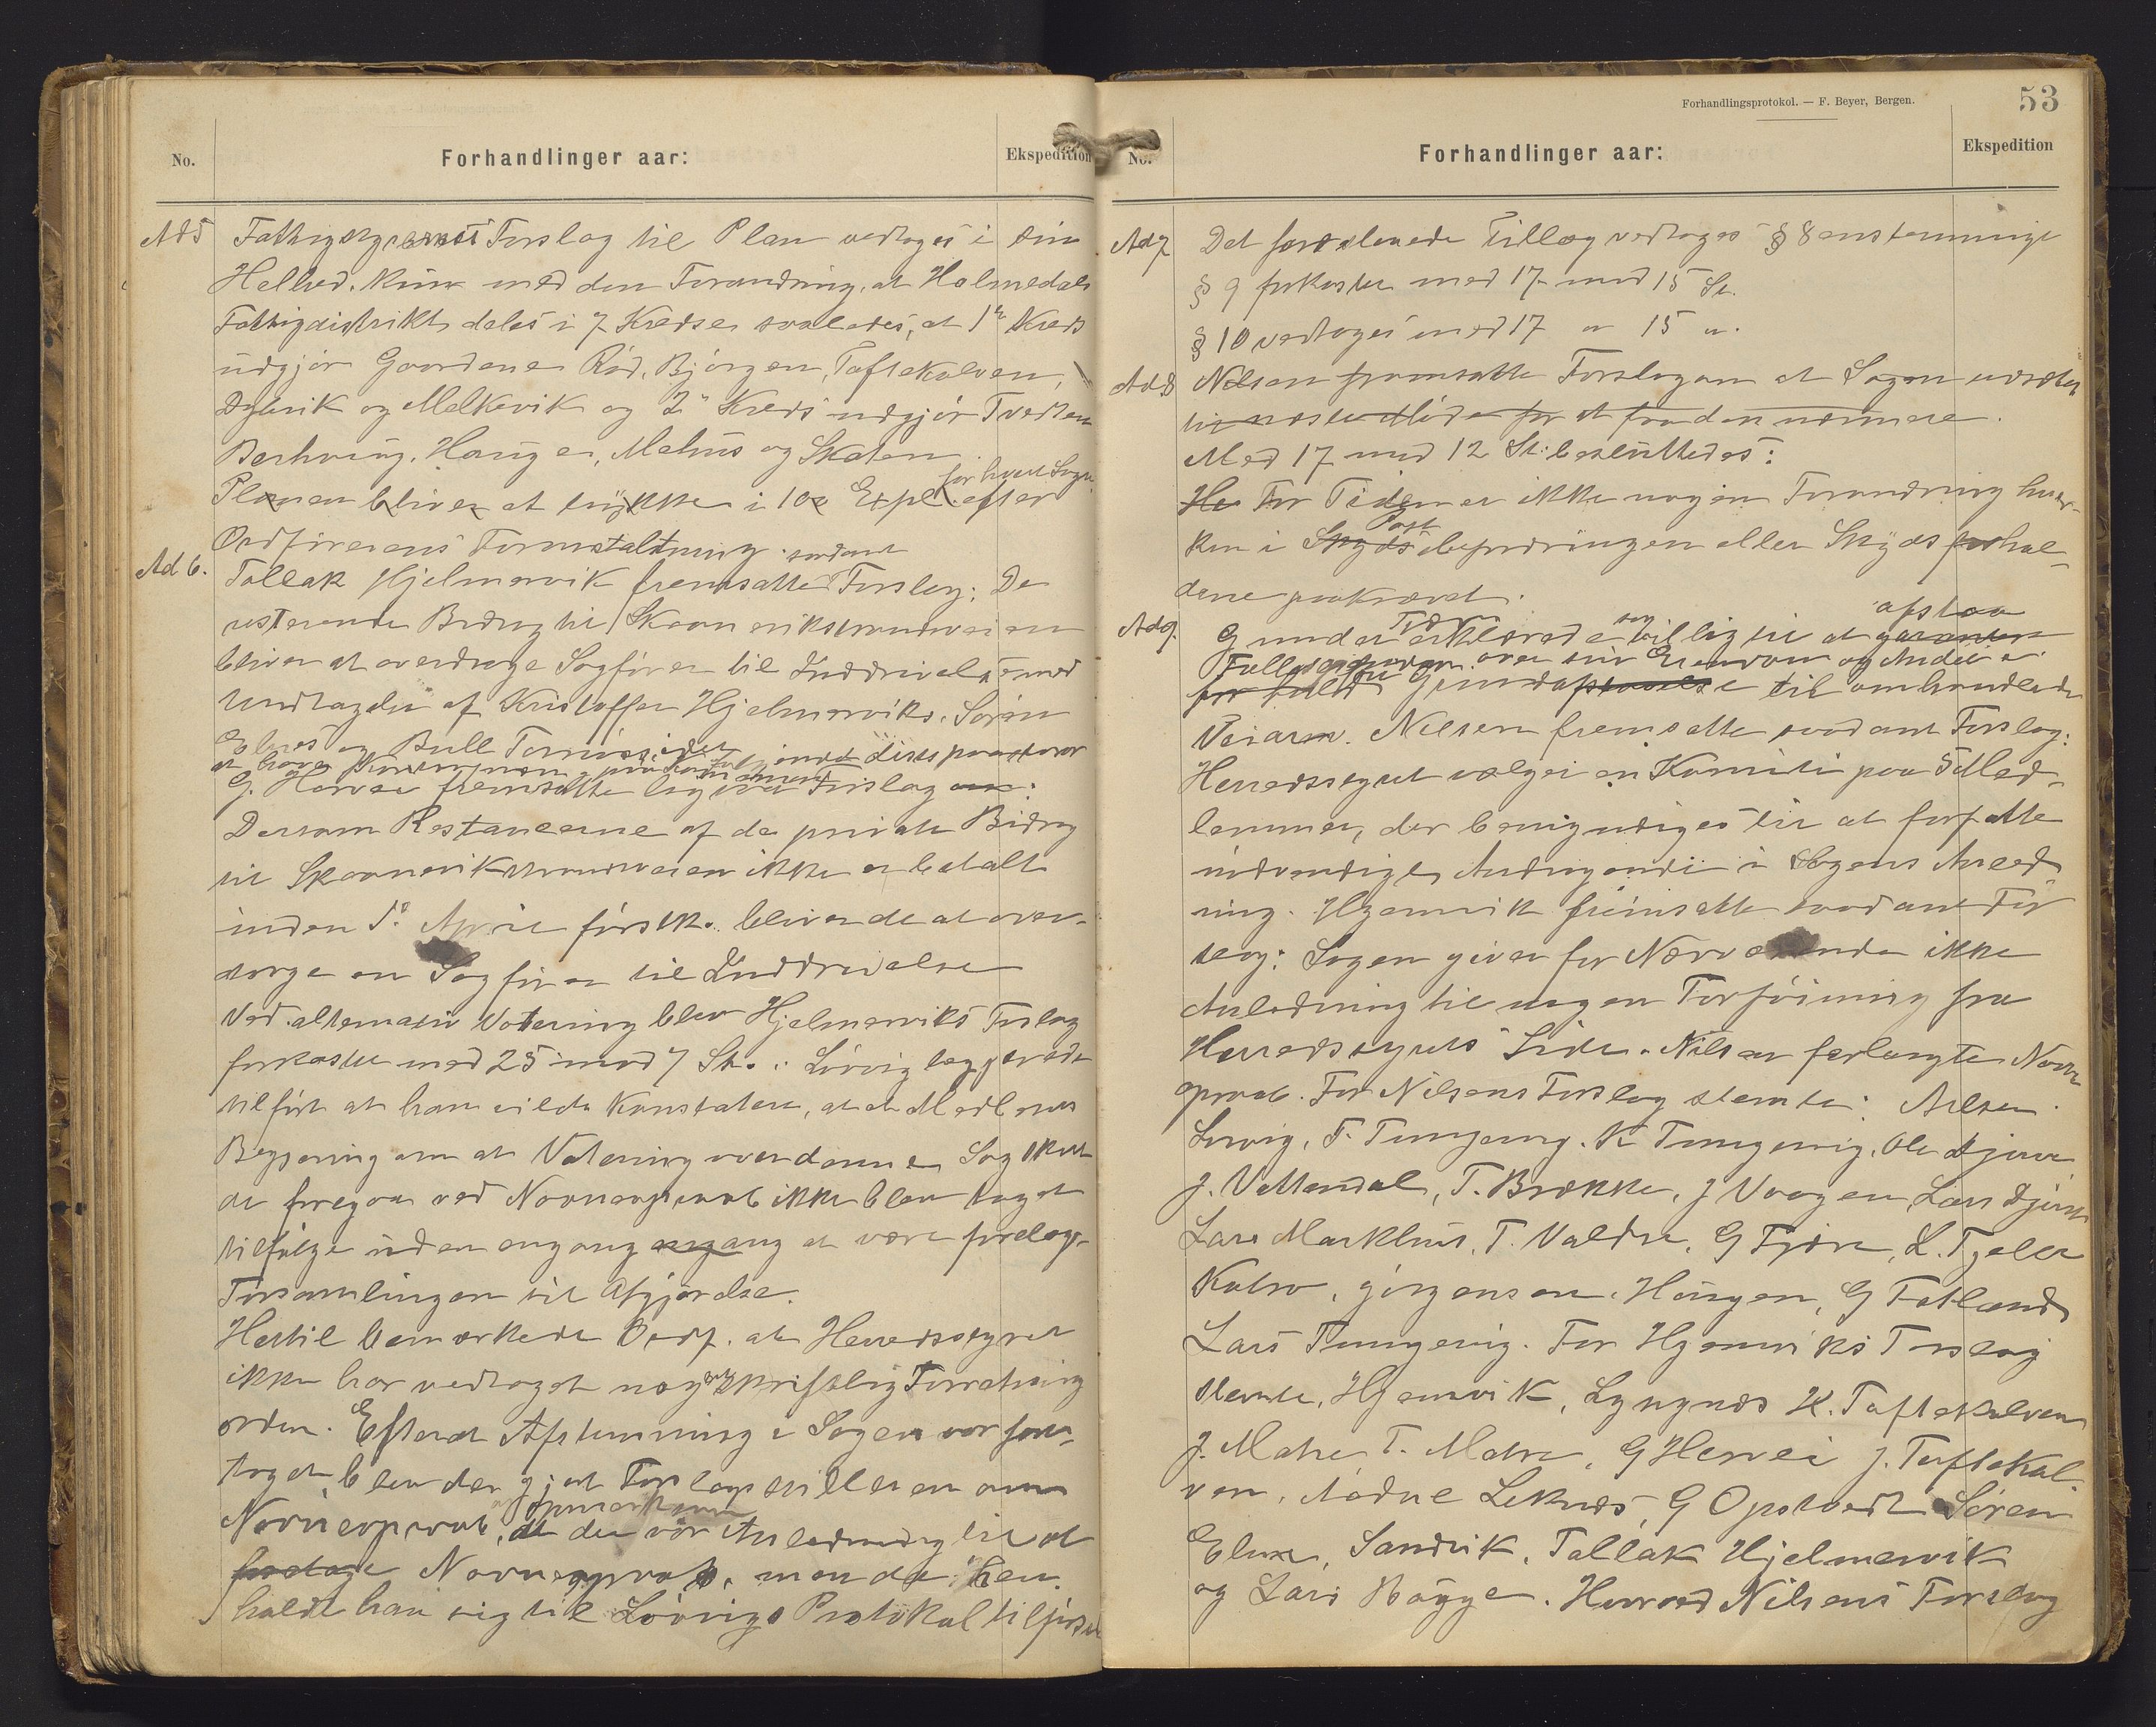 No.
Forhandlinger aar:
Ekspedition
Ad 5 Fattigstyrernes Forslag til Plan vedtoges i sin
Helhed. Kun med den Forandring, at Holmedals
Fattigdistrikt deles i 7 Kredse saaledes, at 1ste Kreds
udgjør Gaardene Rød, Bjørgen, Toftekalven,
Dybvik og Melkevik og 2den Kreds udgjør Tvedten
Berhaug, Hauge, Mehus og Skaten
for hvert Sogn
Planen bliver at trykke i 100 Expl. efter
Ordførerens Foranstaltning.
Ad 6. Tallak Hjelmervik fremsatte saadant Forslag: De
resterende Bidrag til Skaaneviksstrandveien
bliver at overdrage Sagfører til Inddrivelse med
Undtagelse af Kristoffer Hjelmerviks, Søren
Elnes og Bull
G. Hervei fremsatte Forslag om:
Dersom Restancerne af de private Bidrag
til Skaanevikstrandveien ikke er betalt
inden 1ste April førstk. bliver de at over-
drage en Sagfører til Inddrivelse
Ved alternativ Votering blev Hjelmerviks Forslag
forkastet med 25 mod 7 St. Løvvig begjærede
tilført at han vilde konstatere, at et Medlems
Begjæring om at Votering over denne Sag skul-
de foregaa ved Navneopraab ikke blev taget
tilfølge uden engang engang at være forelagt
Forsamlingen til Afgjørelse.
Hertil bemærkede Ordf. at Herredsstyret
ikke har vedtaget nogen skriftlig Forretnings
orden. Efterat Afstemning i Sagen var fore-
taget, blev der gjort Forslagsstilleren
opmærksom
Navneopraab, at der var Anledning til at
foretage Navneopraab, men da hen-
holdt han sig til Løvvigs Protokol tilførsel
Forhandlingsprotokol. — F. Beyer, Bergen.
53
No.
Forhandlinger aar:
Ekspedition
Ad 7 Det foreslaaede Tillæg vedtoges § 8 enstemmigt
§ 9 forkastet med 17 mod 15 St.
§ 10 vedtoges med 17 " 15 "
Ad 8 Nilsen fremsatte Forslag om at Sagen udsættes
til næste Møde for at faa den nærmere.
Med 17 mod 12 St. besluttedes:
He For Tiden er ikke nogen Forandring hver-
Post
ken i Skydsbefordringen eller Skydsforhol-
dene paakrævet.
Ad 9. G erklærede sig villig til at afstaa
garantere
over sin Eiendom og Andel i
for fuld Grundafstaaelse til omhandlede
Veiarm. Nilsen fremsatte saadant Forslag:
Herredsstyret vælger en Komite paa 5 Med-
lemmer, der bemyndiges til at forfatte
nødvendige Andragende i Sagens Anled
ning. Hjemvik fremsatte saadant For
slag: Sagen giver for Nærværende ikke
Anledning til nogen Forføining fra
Herredsstyrets Side. Nilsen forlangte Navne
opraab. For Nilsens Forslag stemte: Nilsen
Løvvig, T. Tungesvig, K Tungesvig, Ole
J. Vettendal, T. Brekke, J Vaagen, Lars
Lars Markhus, T. Valdre, G Fjære, L. Fjeller
Kalro, Jørgensen, Haugen, G Fatland
Lars Tungesvig. For Hjemviks Forslag
stemte, Hjemvik, Lyngnes K. Toftekalven
J. Matre T. Matre, G Hervei J. Toftekal-
ven, Aadne Leknes, G Opstvedt Søren
Elnes, Sandvik, Tallak Hjelmervik
og Lars Bagge. Hvorved Nilsens Forslag